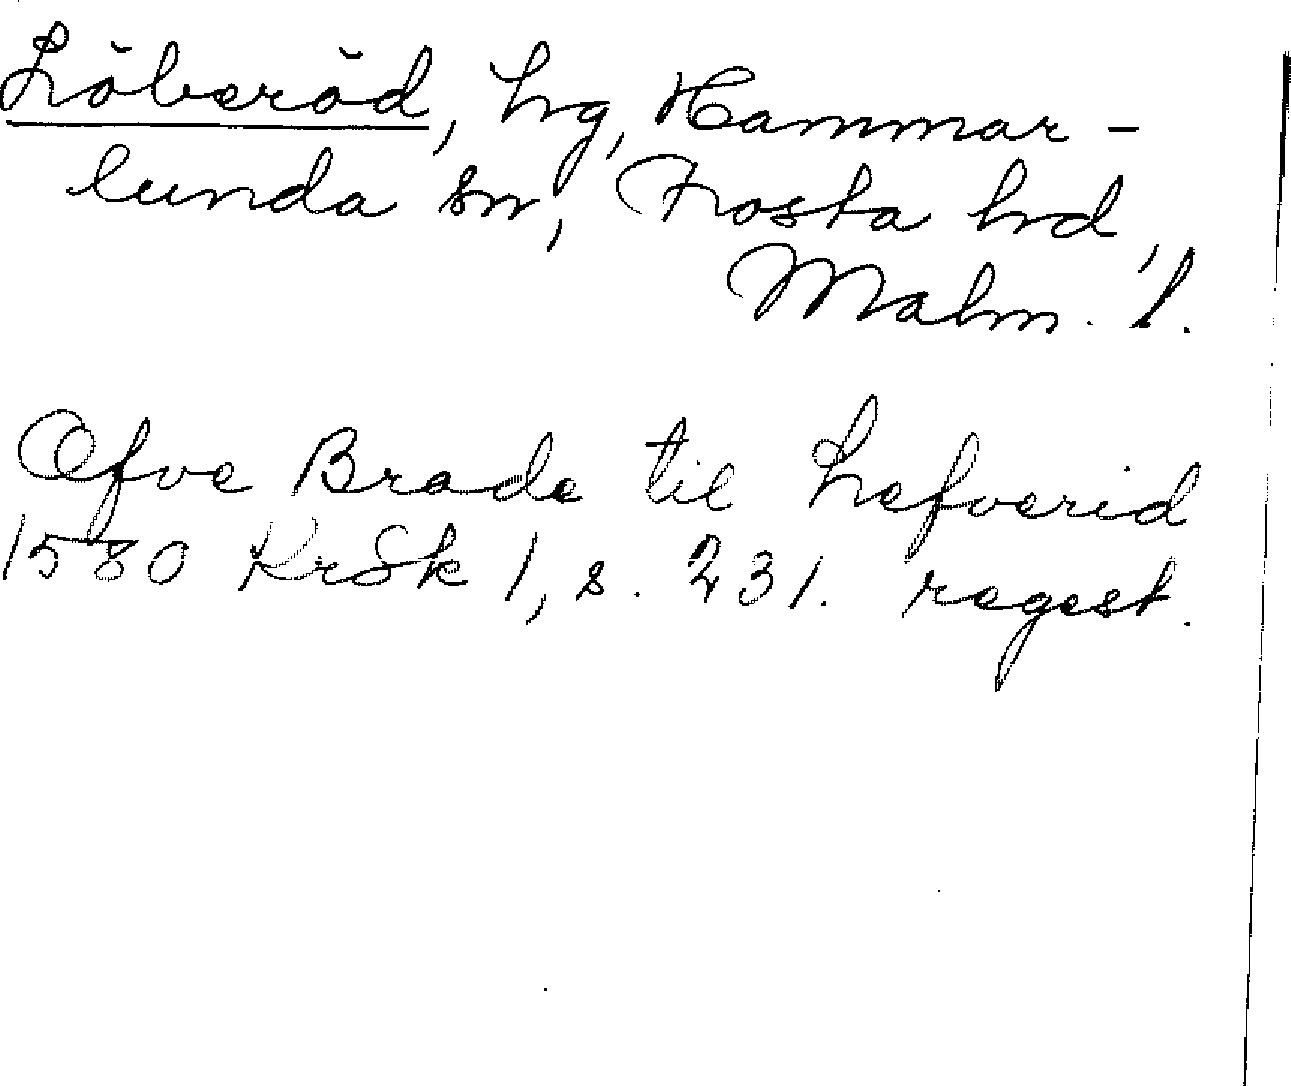 Löberöd, hg, Hammar-
lunda sn, Frosta hd,
Malm. l.
Ofve Brade til Lefverid
1580 KrSk 1, s. 231. regest.